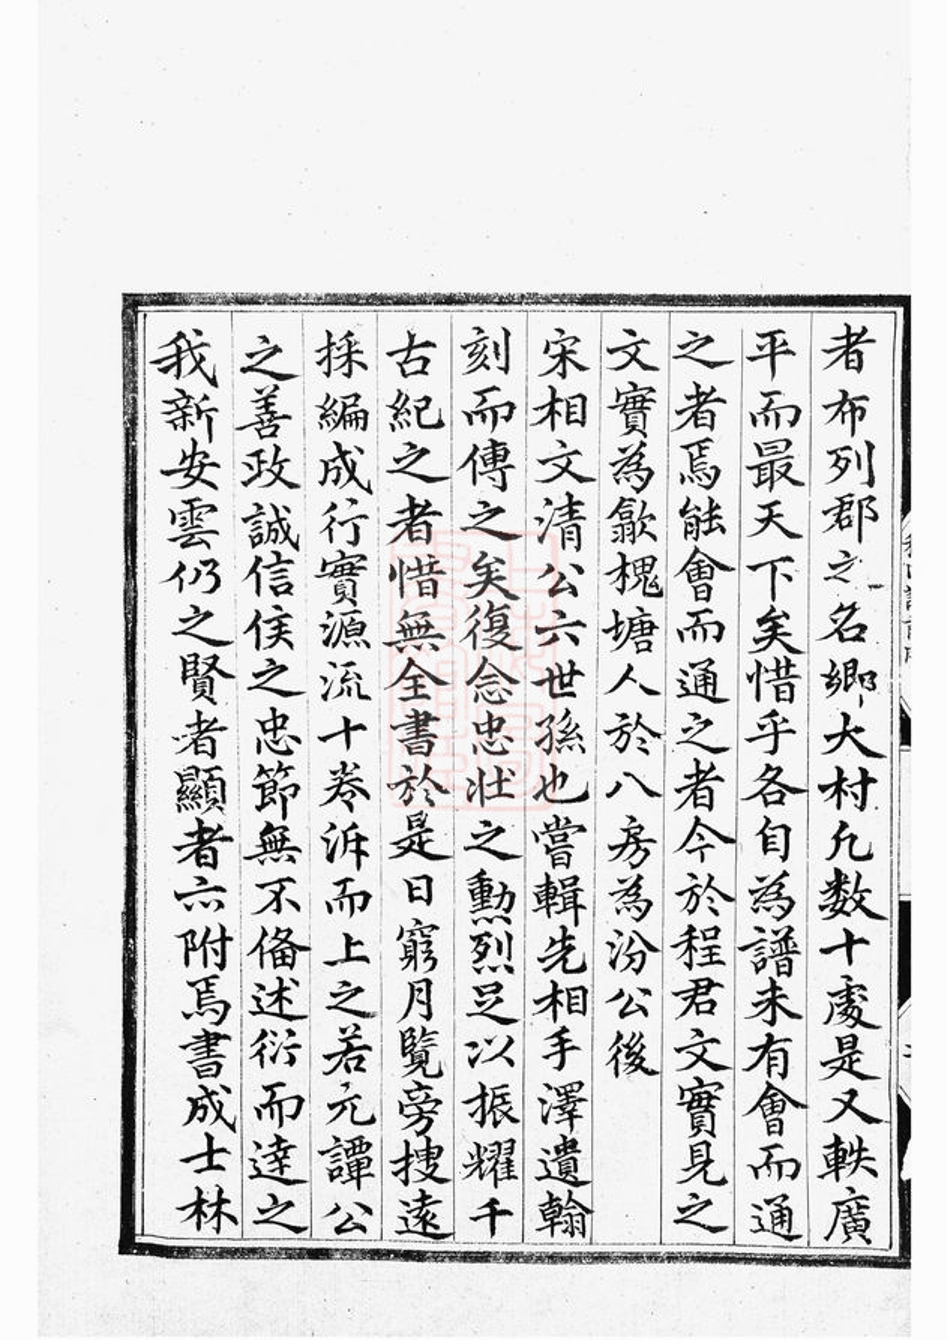 者布列郡之名鄉大村凡數十處是又軼廣
平而最天下矣惜乎各自為譜未有會而通
之者焉能會而通之者今於程君文實見之
文實為歙槐塘人於八房為汾公後
宋相文清公六世孫也嘗輯先相手澤遺翰
刻而傳之矣復念忠壯之勳烈足以振耀千
古紀之者惜無全書於是日窮月覽旁搜遠
採編成行實源流十卷泝而上之若元譚公
之善政誠信侯之忠節無不俻述衍而達之
我新安雲仍之賢者顯者亦附焉書成士林